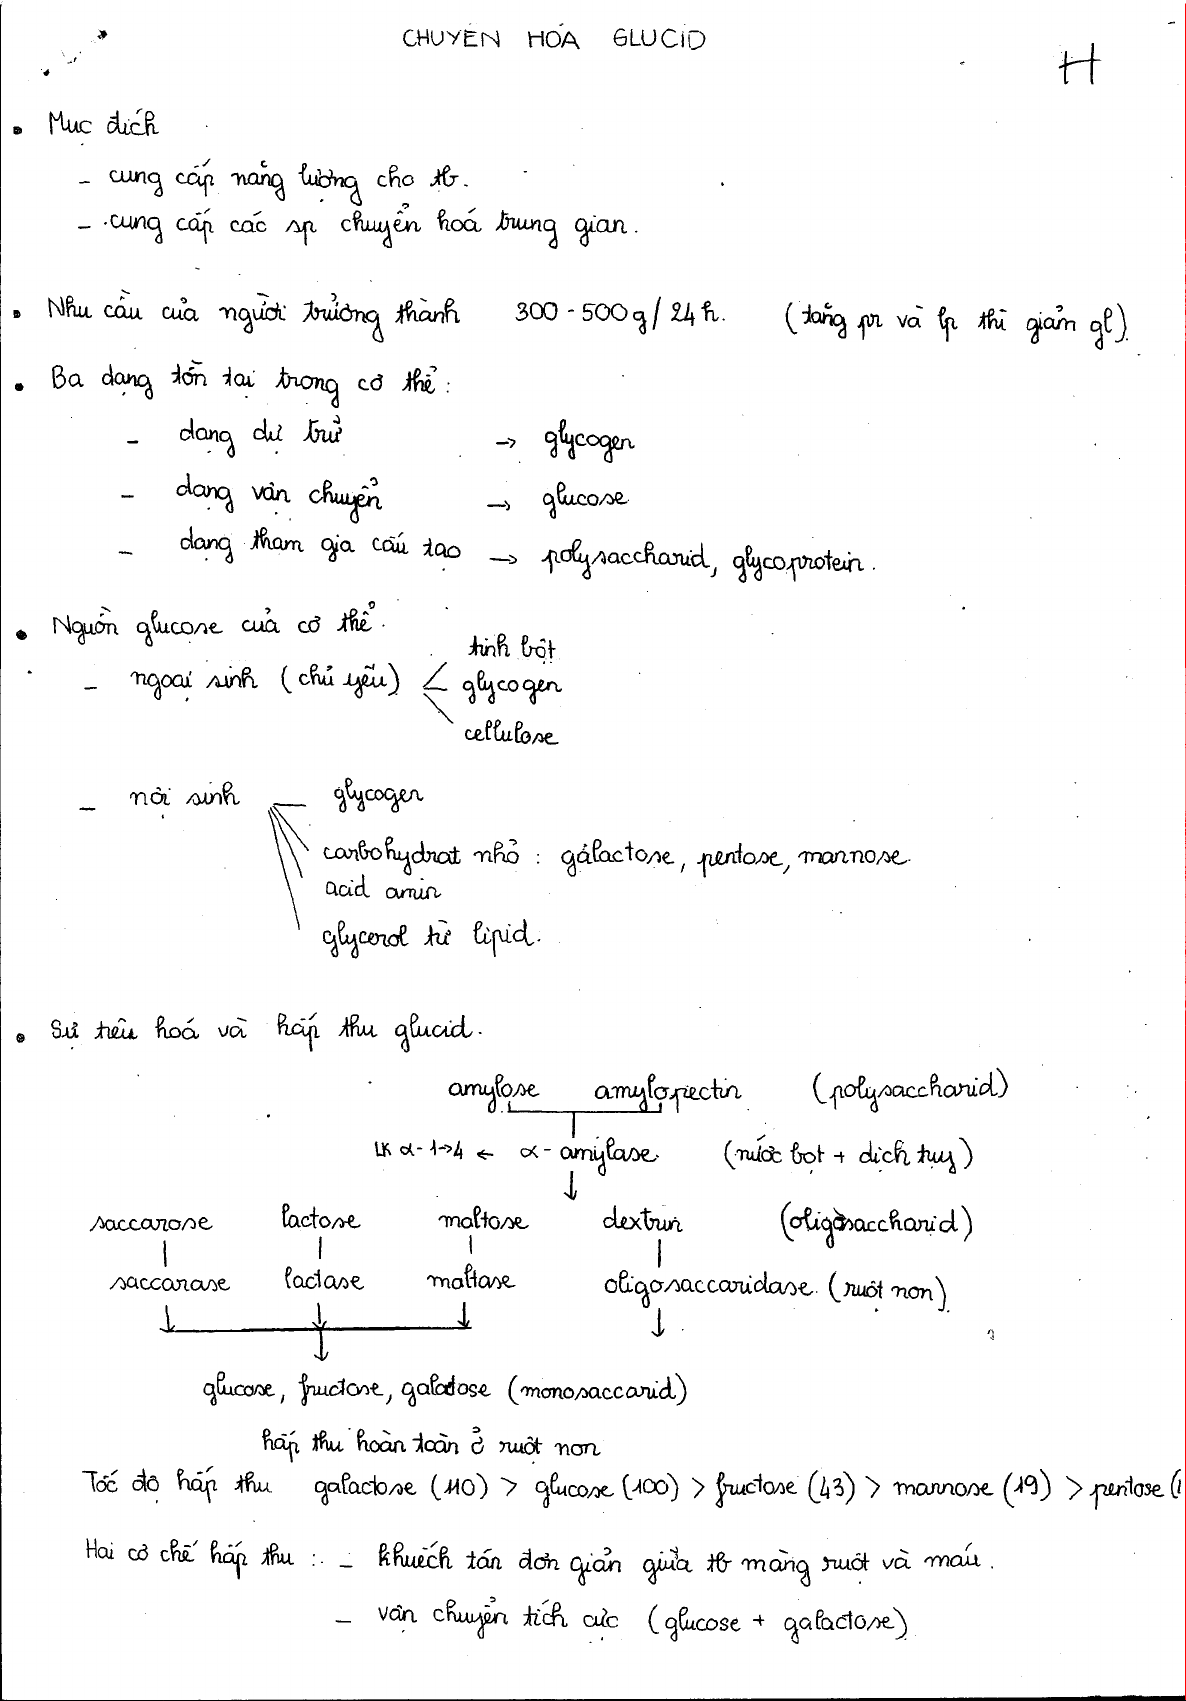 CHUYỂN HÓA GLUCID
H
• Mục đích
- cung cấp năng lượng cho tb.
- cung cấp các sp chuyển hoá trung gian.
• Nhu cầu của người trưởng thành 300-500g/24h. (tăng pr và lp thì giảm gl)
• Ba dạng tồn tại trong cơ thể:
- dạng dự trữ → glycogen
- dạng vận chuyển → glucose
- dạng tham gia cấu tạo → polysaccharid, glycoprotein.
• Nguồn glucose của cơ thể.
tinh bột
- ngoại sinh (chủ yếu) glycogen
cellulose
- nội sinh glycogen
carbohydrat nhỏ: galactose, pentose, mannose.
acid amin
glycerol từ lipid.
• Sự tiêu hoá và hấp thu glucid.
amylose amylopectin (polysaccharid)
LK α-1→4 ← α-amylase (nước bọt + dịch tụy)
saccarose lactose maltose dextrin (oligosaccharid)
saccarase lactase maltase oligosaccaridase (ruột non)
glucose, fructose, galactose (monosaccarid)
hấp thu hoàn toàn ở ruột non
Tốc độ hấp thu galactose (110) > glucose (100) > fructose (43) > mannose (19) > pentose (
Hai cơ chế hấp thu: - khuếch tán đơn giản giữa tb màng ruột và máu.
- vận chuyển tích cực (glucose + galactose)